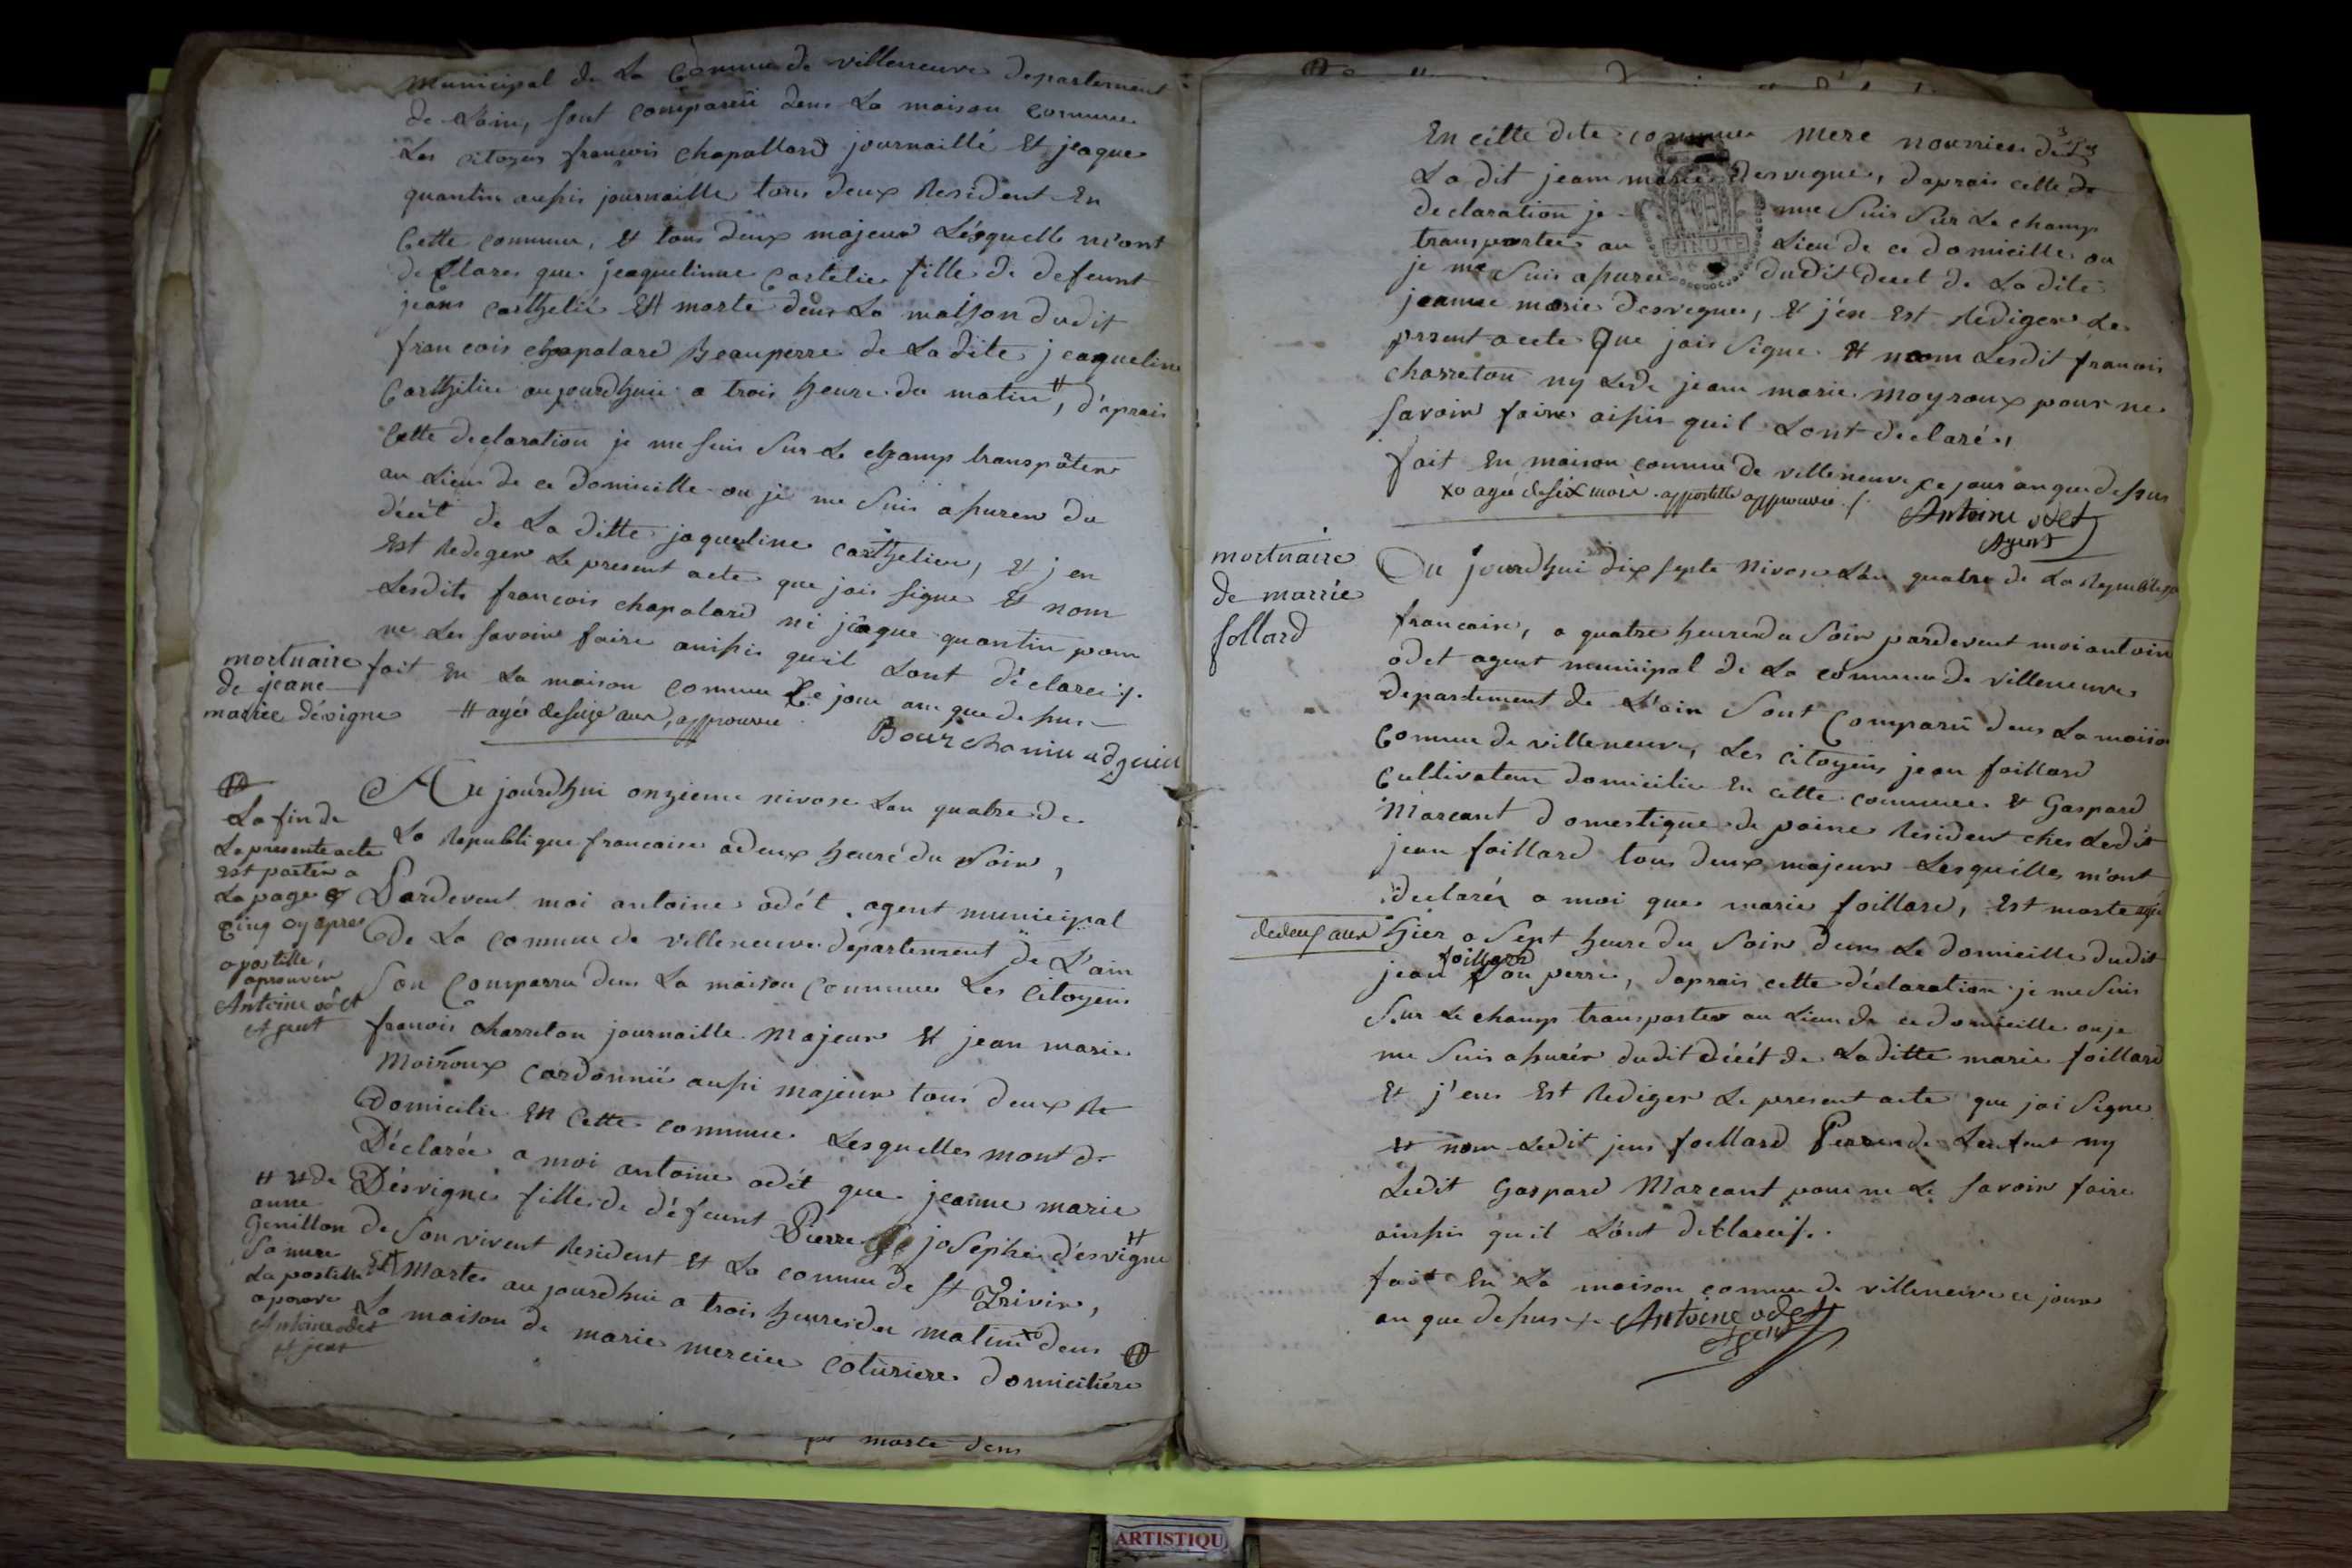 municipal de La Comune de villeneuve departement
de Lain, sont comparûi dens La maison commune
Les citoyens francois chapallard journaillé Et jeaque
quantin aussis journaille tous deux Resident En
Cette commune, Et tous deux majeur Lésquelle m'ont
declares que jeaquelinne Castelie fille de defeunt
jeans carthelié Est morte dens La maison dudit
francois chapalard Beauperre de La dite jeaqueline
Carthelier aujourdhuie a trois heure du matin #, d'aprais
Cette declaration je me suis Sur Le champ transpôter
au Lieu de ce Domicille ou je me Suis assurer du
décét de La ditte jaqueline carthelier, Et j en
Est Rediger Le present acte que jais signe Et nom
Lesdits francois chapalard ni jeaque quantin pour
ne Les savoir faire ainssis quil Lont déclareis.
fait En La maison commune Le jour an que dessus
# ageé deseize ans, approuvee
Bourchanin adjoin
mortuaire
de jeane
mariee dévigne
Au jourdhui onzieme nivose Lan quatre de
La Republique francaise a deux heuré du Soir,
Pardevent moi antoine odét agent municipal
De La commune de villeneuve departement de L'ain
Son Comparru dens La maison Commune Les Citoyens
francois charreton journaille majeur Et jean marie
Moiroux Cardonnié aussi majeur tous deux Re
Domicilie En Cette commune Lesquelles mont d
Déclarée a moi antoine odét que jeanne marie
Désvigne fille de défeunt Pierre josephe d'esvigne #
de Son vivent Resident Et La commune de St Trivier,
Est Morte au jourdhui a trois heures du matin xo dens
La maison de marie mercier coturiere domiciliére #
#
La fin de
La presente acte
Est porter a
La page
cinq cy apres
apostille,
aprouver
Antoine odét
Agent
# Et de
anne
Genillon
Sa mere
La postille
aprouve
Antoine odet
agent
morte dens
En cette dite commune mere nourrice de
La dit jeann marie Desvigne, daprais cette de
declaration je me Suis Sur Le champ
transporter au Lieu de ce domicille ou
je me suis assurer dudit decet de La dite
jeanne marie desvegne, Et j'en Est Rediger Le
present acte Que jais signe Et nom Lesdit francois
charreton ny Lede jean marie Moyroux pour ne
savoir faire aissis quil Lont declaré,
fait En maison commune de villeneuve ce jour an que dessus
xo ageé desix mois appostille approuvée
Antoine odet
Agent
MINUTE
mortuaire
de marrie
follard
Du jourdhui dix septe Nivose Lan quatre de La Republique
francaise, a quatre heures du Soir pardevent moi antoine
odet agent municipal de La commune de villeneuve
Departement de L'ain Sont Comparû dens La maison
Commune de villeneuve, Les citoyens jean foillard
Cultivateur domicilie En cette commune Et Gaspard
Marcant domestique de paine Resident ches Ledit
jean foillard tous deux majeur Lesquélles m'ont
declarés a moi que marie foillard, Est morte agé
dedeux ans hier a Sept heure du Soir dens Le domicille dudit
foillard
jean Son perre, daprais cette déclaration je me Suis
Sur Le champ transporter au Lieu de ce domicille ou je
me Suis assurér dudit décét de Laditte marie foillard
Et j'en Est Rediger Le present acte que jai Signe
Et nom Ledit jean foillard Perre de Lenfent ny
Ledit Gaspard Marcant pour ne Le savoir faire
ainssis qu il Lont déclareis.
fait En La maison commune de villeneuve ce jour
an que dessus Antoine odet
Agent
ARTISTIQU